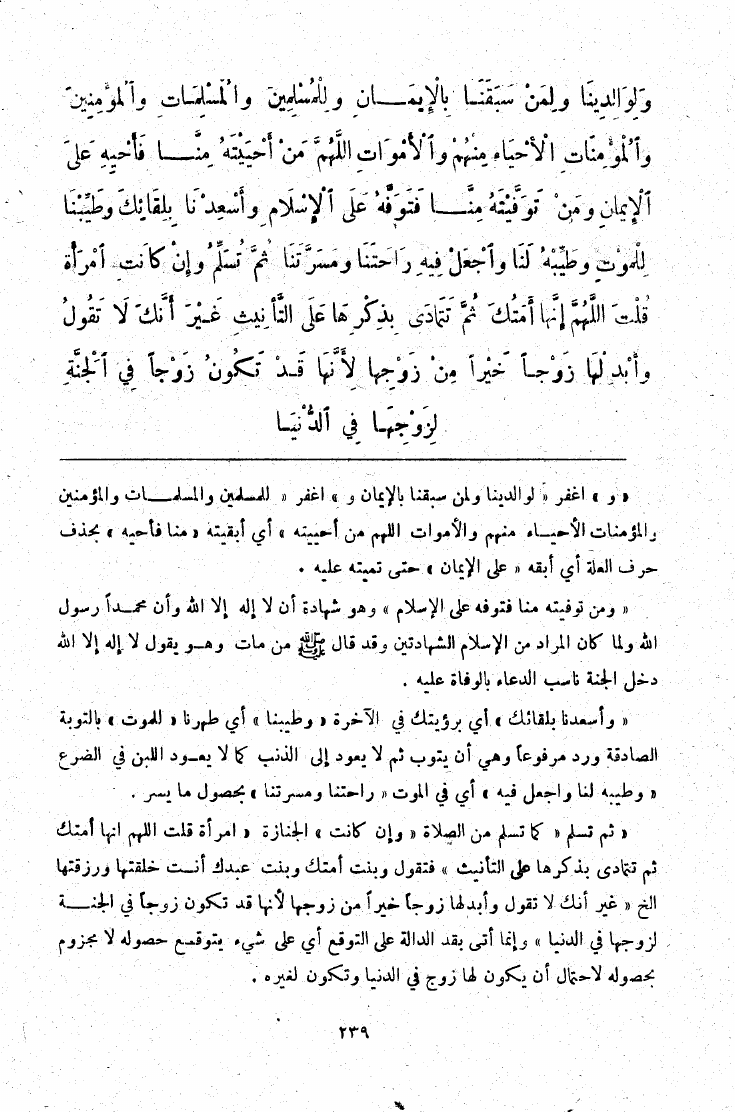 وَلِوَالِدِينَا وَلِمَنْ سَبَقَنَـا بِالْإِيمَـــانِ وَلِلْمُسْلِمِينَ وَالْمُسْلِمَاتِ وَٱلْمُؤْمِنِينَ
وَٱلْمُؤْمِنَاتِ الْأَحْيَاءِ مِنْهُمْ وَٱلْأَمْوَاتِ اللَّهُمَّ مَنْ أَحْيَيْتَهُ مِنَّـــا فَأَحْيِهِ عَلَىَ
ٱلْإِيمَانِ وَمَنْ تَوَفَّيْتَهُ مِنَّـــا فَتَوَفَّهُ عَلَى ٱلْإِسْلَامِ وَأَسْعِدْنَا بِلِقَائِكَ وَطَيِّبْنَا
لِلْمَوْتِ وَطَيِّبْهُ لَنَا وَٱجْعَلْ فِيهِ رَاحَتَنَا وَمَسَرَّتَنَا ثُمَّ تُسَلِّمُ وَإِنْ كَانَتِ ٱمْرَأَةً
قُلْتَ اللَّهُمَّ إِنَّهَا أَمَتُكَ ثُمَّ تَتَمَادَى بِذِكْرِهَا عَلَى التَّأْنِيثِ غَـيْرَ أَنَّكَ لَا تَقُولُ
وَأَبْدِلْهَا زَوْجـاً خَيْراً مِنْ زَوْجِها لِأَنَّهَا قَـدْ تَكُونُ زَوْجاً فِي ٱلْجَنَّةِ
لِزَوْجِهَـا فِي ٱلدُّنْيَـا
« و » اغفر « لوالدينا ولمن سبقنا بالإيمان و » اغفر « للمسلمين والمسلمـــات والمؤمنين
والمؤمنات الأحيـــاء منهم والأموات اللهم من أحييته » أي أبقيته « منا فأحيه » بحذف
حرف العلة أي أبقه « على الإيمان » حتى تميته عليه .
« ومن توفيته منا فتوفه على الإسلام » وهو شهادة أن لا إله إلا الله وأن محمـداً رسول
الله ولما كان المراد من الإسلام الشهادتين وقد قال ﷺ من مات وهـو يقول لا إله إلا الله
دخل الجنة ناسب الدعاء بالوفاة عليه .
« وأسعدنا بلقائك » أي برؤيتك في الآخرة « وطيبنا » أي طهرنا « للموت » بالتوبة
الصادقة ورد مرفوعاً وهي أن يتوب ثم لا يعود إلى الذنب كما لا يعـود اللبن في الضرع
« وطيبه لنا واجعل فيه » أي في الموت « راحتنا ومسرتنا » بحصول ما يسر .
« ثم تسلم » كما تسلم من الصلاة « وإن كانت » الجنازة « امرأة قلت اللهم انها أمتك
ثم تتمادى بذكرها على التأنيث » فتقول وبنت أمتك وبنت عبدك أنـت خلقتها ورزقتها
الخ « غير أنك لا تقول وأبدلها زوجاً خيراً من زوجها لأنها قد تكون زوجاً في الجنـــة
لزوجها في الدنيا » وإنما أتى بقد الدالة على التوقع أي على شيء يتوقـع حصوله لا مجزوم
بحصوله لاحتمال أن يكون لها زوج في الدنيا وتكون لغيره .
٢٣٩